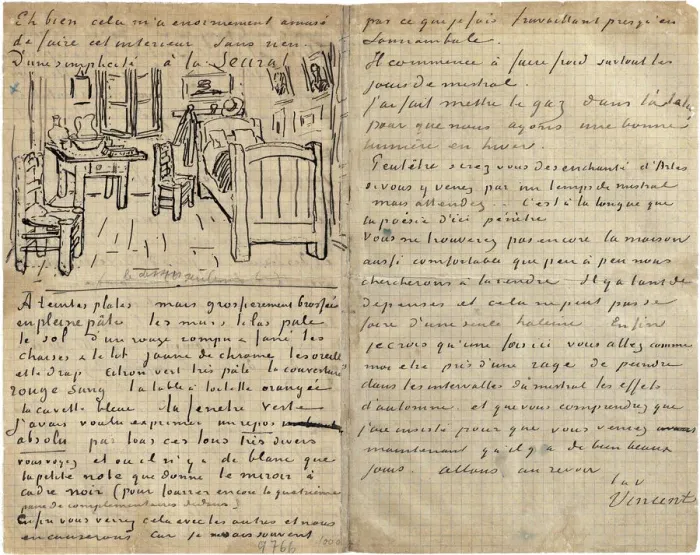 Eh bien cela m'a enormement amusé
de faire cet interieur sans rien.
D'une simplicité à la Seurat
A teintes plates mais grossierement brossée
en pleine pâte les murs lilas pale
le sol d'un rouge rompu & fané les
chaises & le lit jaune de chrome les oreillers
et le drap citron vert très pâle la couverture
rouge sang la table à toilette orangée
la cuvette bleue la fenetre verte
J'avais voulu exprimer un repos
absolu par tous ces tons très divers
vous voyez et où il n'y a de blanc que
la petite note que donne le miroir à
cadre noir (pour fourrer encore la quatrième
paire de complementaires dedans)
Enfin vous verrez cela avec les autres et nous
en causerons car je ne sais souvent
9766
par ce que je fais travaillant presqu'en
somnambule.
Il commence à faire froid surtout les
jours de mistral.
J'ai fait mettre le gaz dans l'atelier
pour que nous ayons une bonne
lumière en hiver.
Peutêtre serez vous desenchanté d'Arles
si vous y venez par un temps de mistral
mais attendez... C'est à la longue que
la poésie d'ici pénètre
Vous ne trouverez pas encore la maison
aussi comfortable que peu à peu nous
chercherons à la rendre Il y a tant de
depenses et cela ne peut pas se
faire d'une seule haleine Enfin
je crois qu'une fois ici vous allez comme
moi etre pris d'une rage de peindre
dans les intervalles du mistral les effets
d'automne. et que vous comprendrez que
j'aie insisté pour que vous veniez
maintenant qu'il y a de bien beaux
jours allons au revoir
t. à v.
Vincent